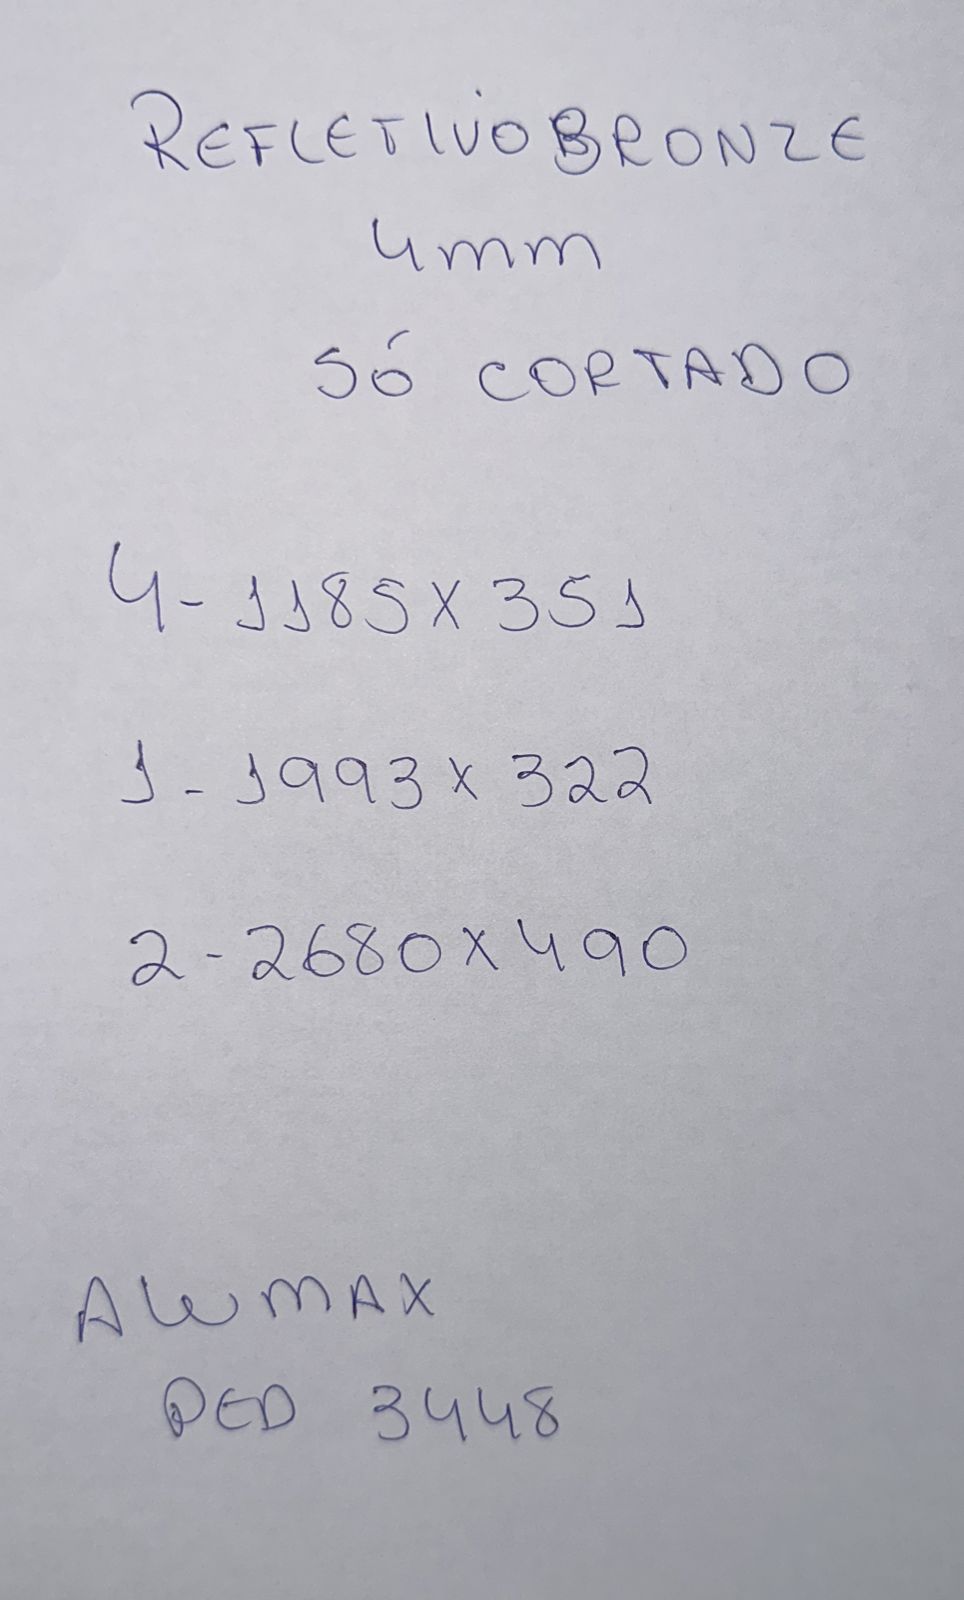 REFLETIVO BRONZE
4mm
SÓ CORTADO
4-1185X351
1-1993x322
2-2680x490
ALUMAX
PED 3448